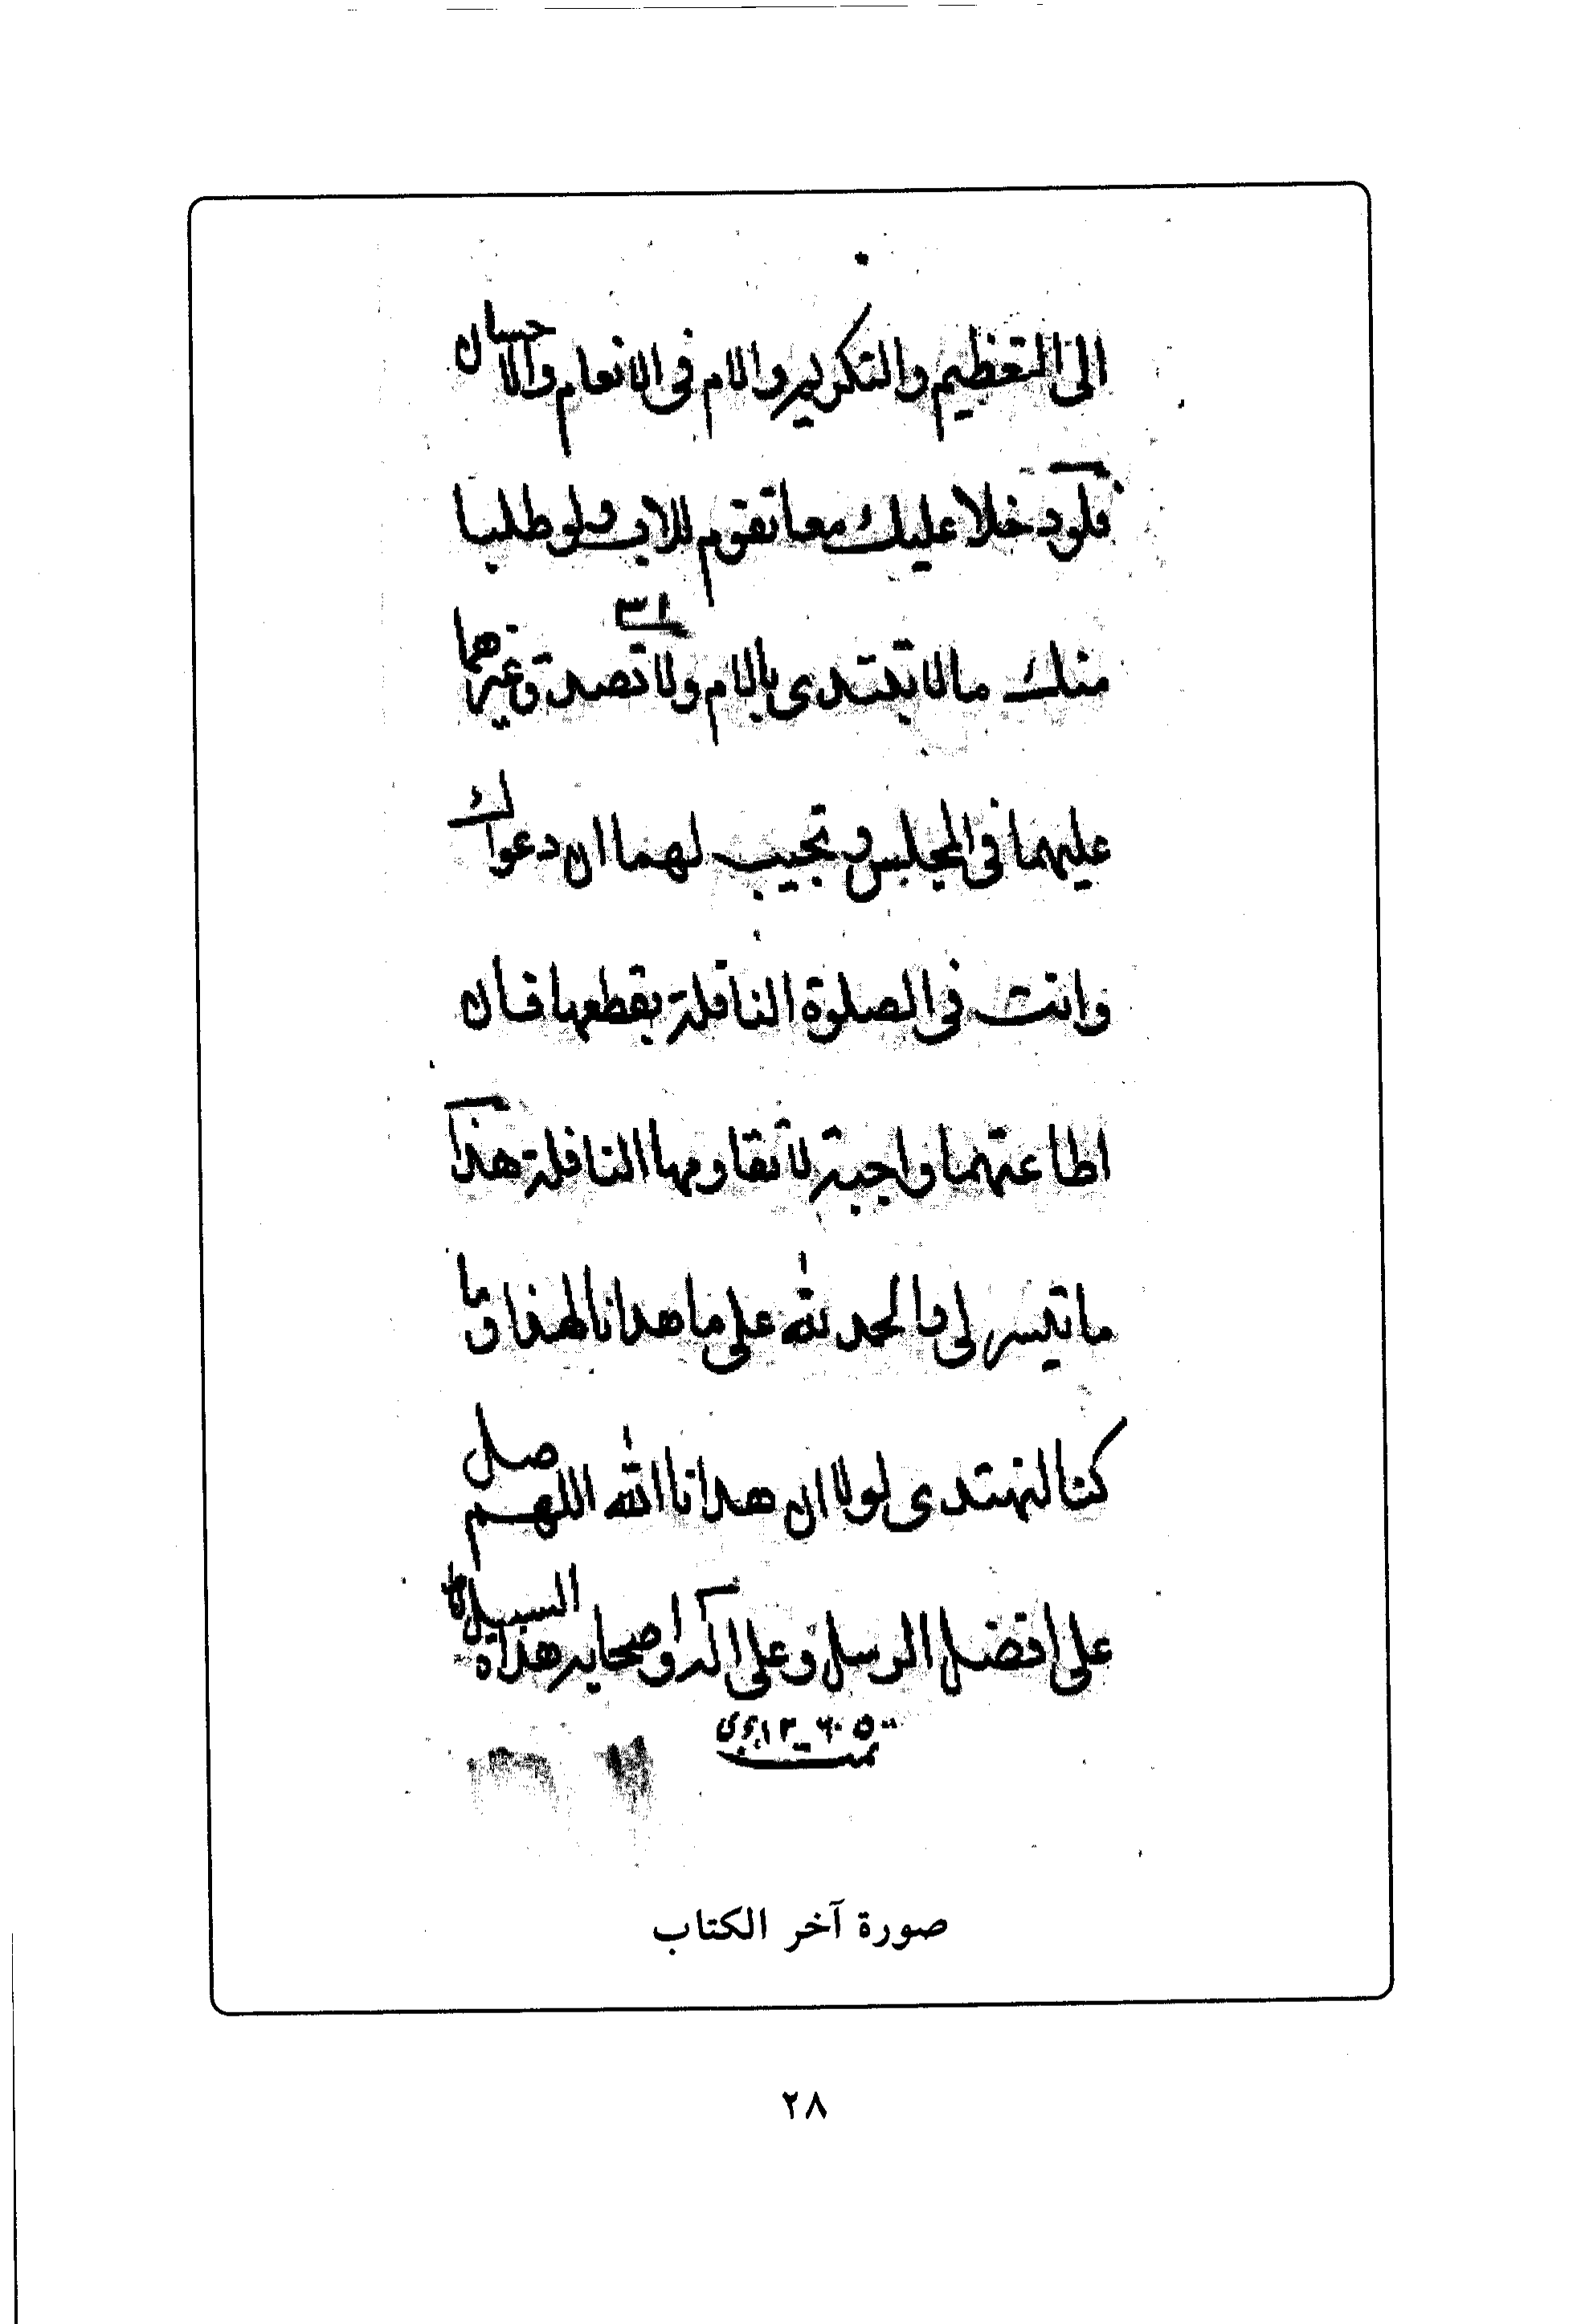 الى التعظيم والتكريم والام فى الانعام والاحسان
فلو دخلا عليك معا تقوم للاب ولو طلبا
٣١
منك مالا تبتدى بالام ولا تصدق غيرهما
عليهما فى المجلس وتجيب لهما ان دعواك
وانت فى الصلوة النافلة بقطعها فان
اطاعتهما واجبة لا تقاومها النافلة هذا
ما تيسر لى والحمد لله على ما هدانا لهذا وما
كنا لنهتدى لولا ان هدانا الله اللهم صل
على افضل الرسل وعلى اله واصحابه هداة السبيل
تمت
صورة آخر الكتاب
٢٨